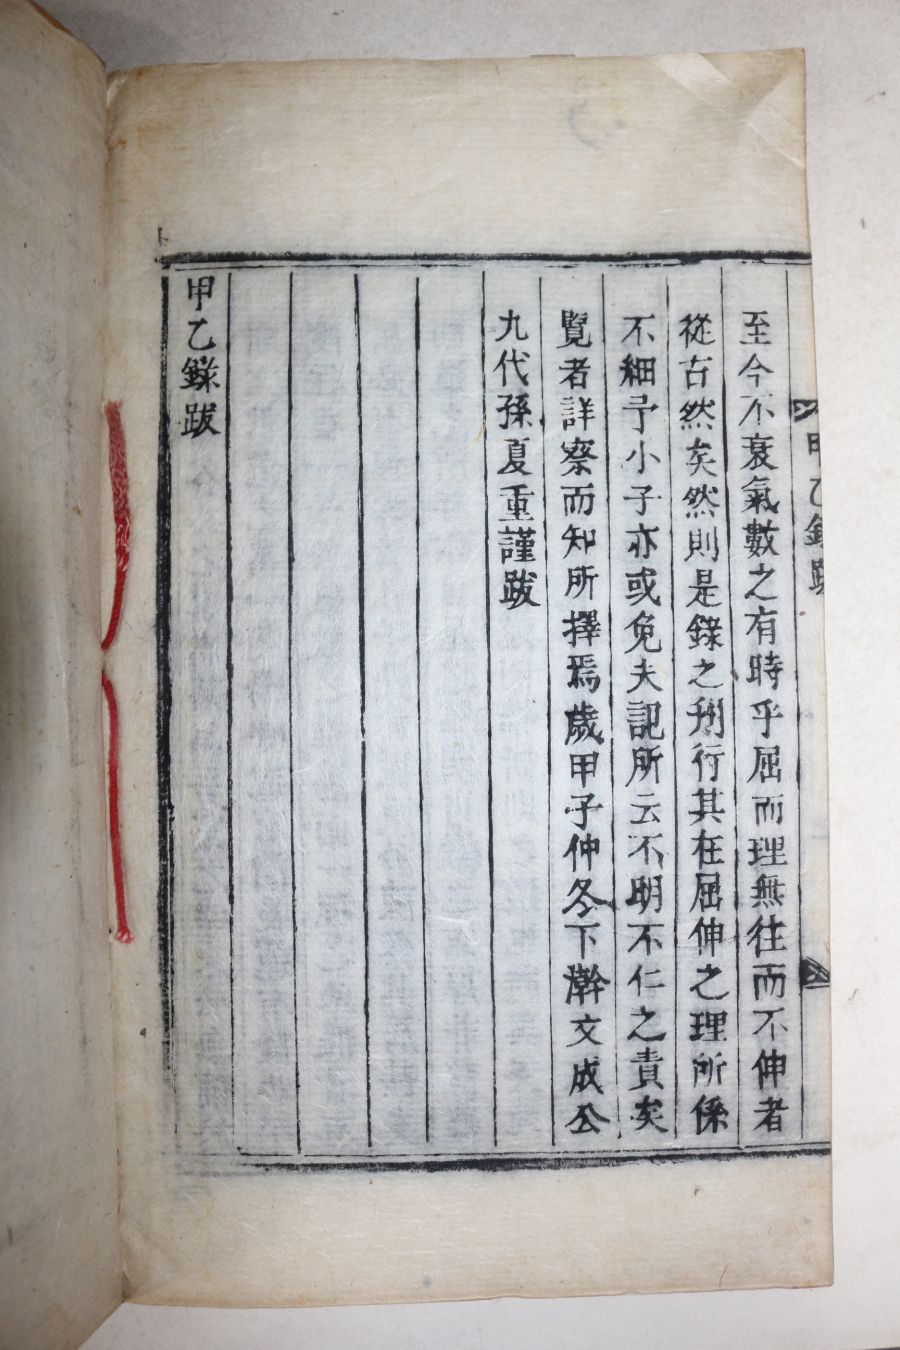 甲乙錄跋
至今不衰氣數之有時乎屈而理無往而不伸者
從古然矣然則是錄之刋行其在屈伸之理所係
不細予小子亦或免夫記所云不明不仁之責矣
覽者詳察而知所擇焉歲甲子仲冬下澣文成公
九代孫夏重謹跋
甲乙錄跋